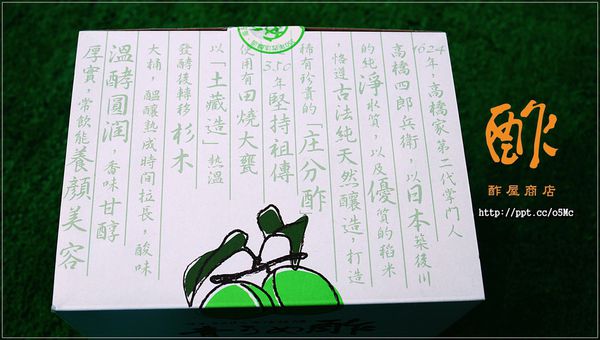 1624年，高橋家第二代掌門人
高橋四郎兵衛，以日本築後川
的純淨水質，以及優質的稻米
，恪遵古法純天然釀造，打造
稀有珍貴的「庄分酢」
350年堅持祖傳
使用有田燒大甕
以「土藏造」熱溫
發酵後轉移杉木
大桶，醞釀熟成時間拉長，酸味
溫酵圓潤，香味甘醇
厚實，常飲能養顏美容
酢
酢屋商店
http://ppt.cc/o5Mc